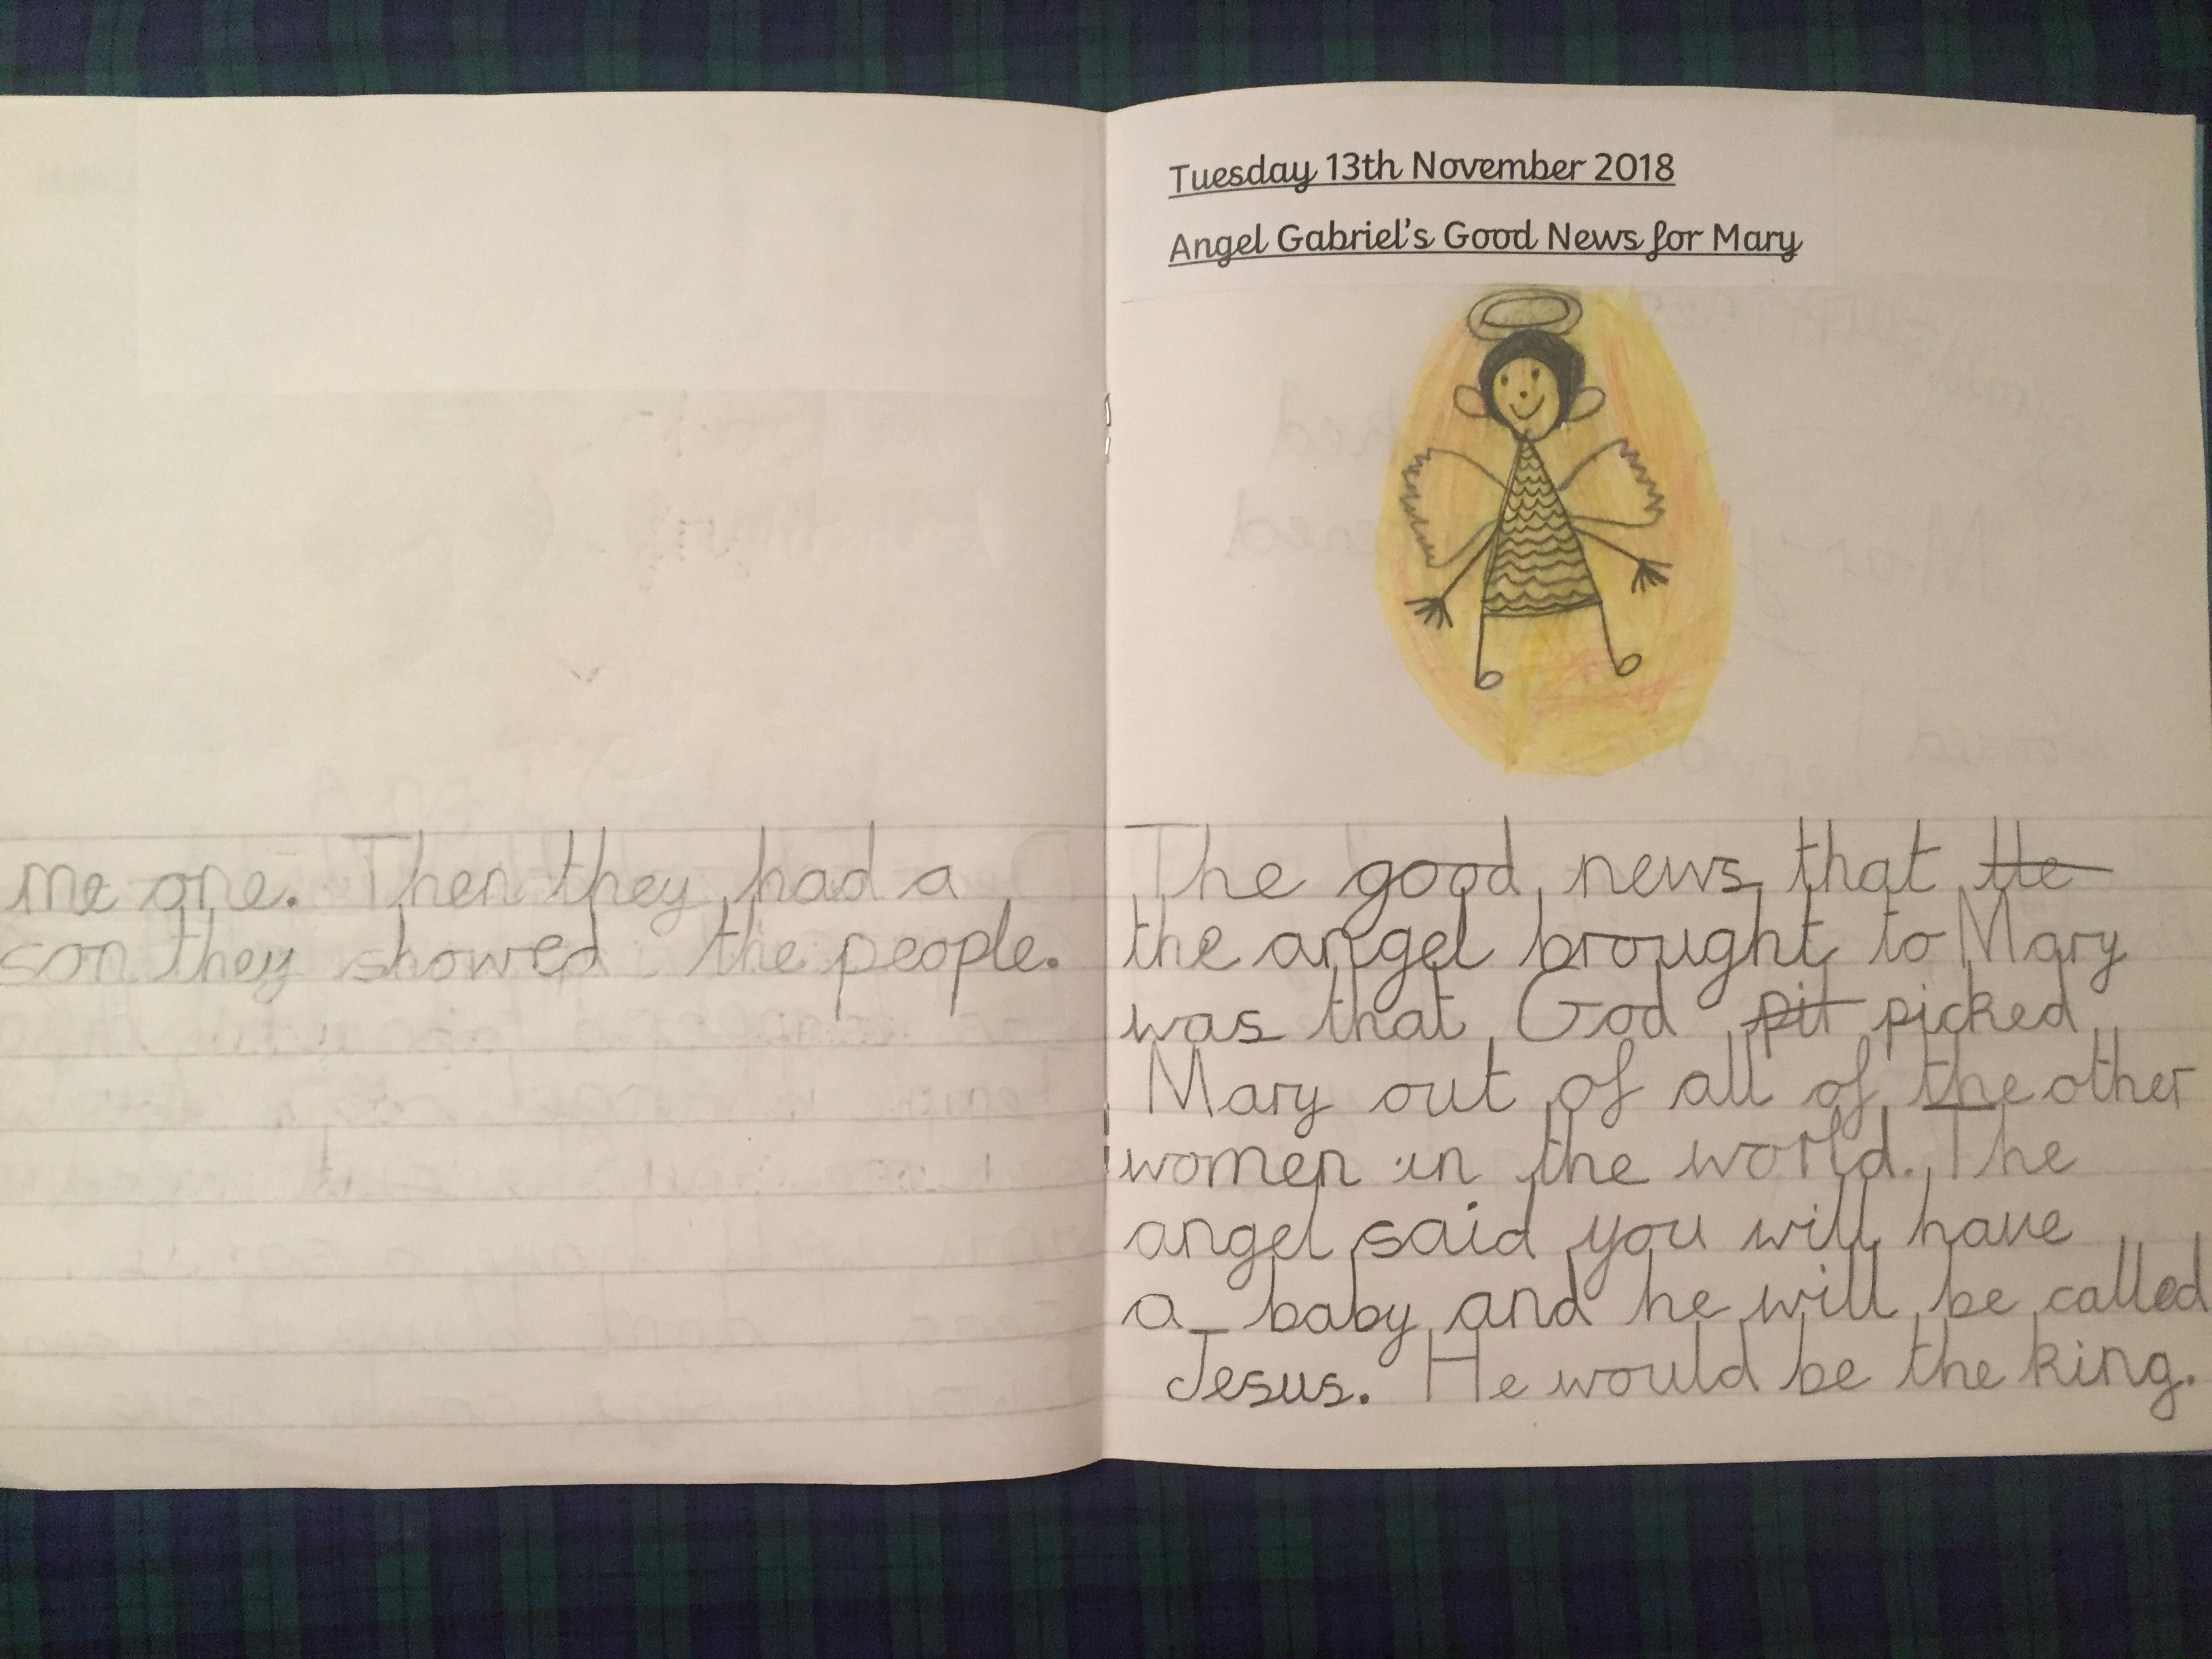 me one. Then they had a
son they showed the people.
Tuesday 13th November 2018
Angel Gabriel's Good News for Mary
The good news that He
the angel brought to Mary
was that God pit picked
Mary out of all of the other
women in the world. The
angel said you will have
a baby and he will be called
Jesus. He would be the king.